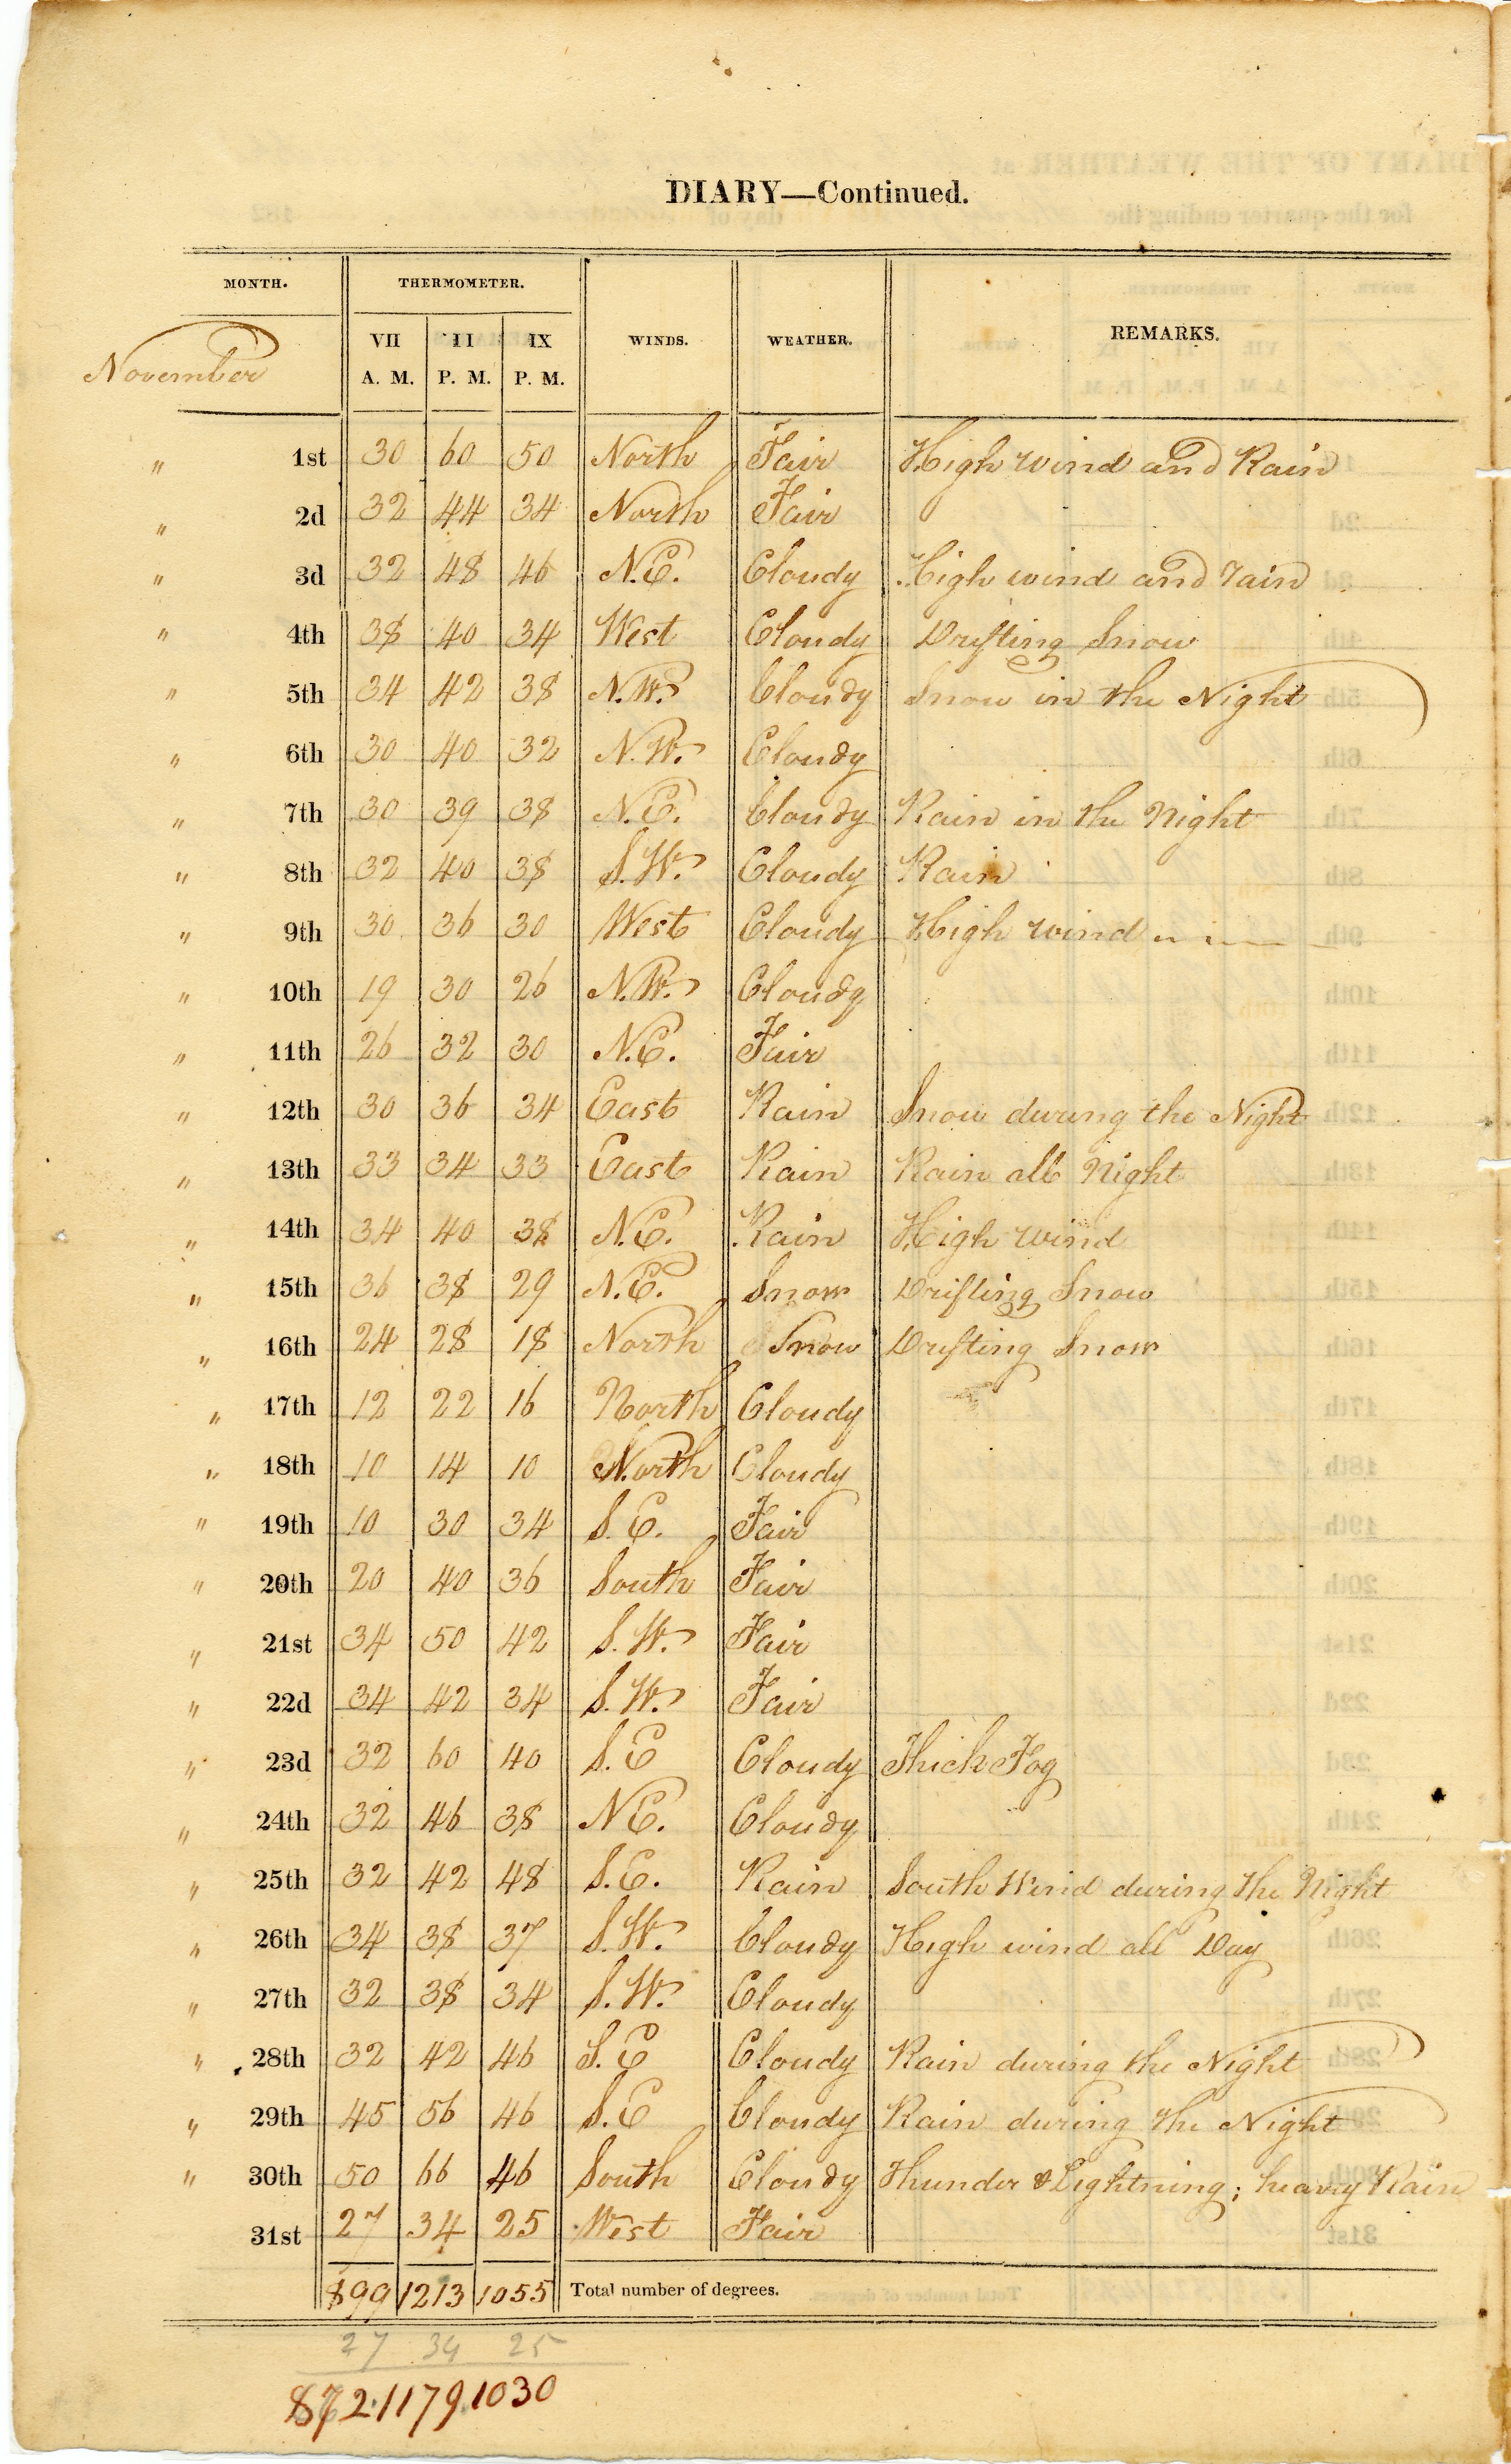 DIARY—Continued.
MONTH. THERMOMETER. WINDS. WEATHER. REMARKS.
November VII A. M. II P. M. IX P. M.
" 1st 30 60 50 North Fair High wind and Rain
" 2d 32 44 34 North Fair
" 3d 32 48 46 N.E. Cloudy High wind and rain
" 4th 38 40 34 West Cloudy Drifting Snow
" 5th 34 42 38 N.W. Cloudy Snow in the Night
" 6th 30 40 32 N.W. Cloudy
" 7th 30 39 38 N.E. Cloudy Rain in the Night
" 8th 32 40 38 S.W. Cloudy Rain
" 9th 30 36 30 West Cloudy High wind
" 10th 19 30 26 N.W. Cloudy
" 11th 26 32 30 N.E. Fair
" 12th 30 36 34 East Rain Snow during the Night
" 13th 33 34 33 East Rain Rain all Night
" 14th 34 40 38 N.E. Rain High wind
" 15th 36 38 29 N.E. Snow Drifting Snow
" 16th 24 28 18 North Snow Drifting Snow
" 17th 12 22 16 North Cloudy
" 18th 10 14 10 North Cloudy
" 19th 10 30 34 S.E. Fair
" 20th 20 40 36 South Fair
" 21st 34 50 42 S.W. Fair
" 22d 34 42 34 S.W. Fair
" 23d 32 60 40 S.E Cloudy Thick Fog
" 24th 32 46 38 N E. Cloudy
" 25th 32 42 48 S.E. Rain South Wind during the Night
" 26th 34 38 37 S.W. Cloudy High wind all Day
" 27th 32 38 34 S.W. Cloudy
" 28th 32 42 46 S.E Cloudy Rain during the Night
" 29th 45 56 46 S.E Cloudy Rain during the Night
" 30th 50 66 46 South Cloudy Thunder & Lightning; heavy Rain
31st 27 34 25 West Fair
899 1213 1055 Total number of degrees.
27 34 25
872.1179.1030